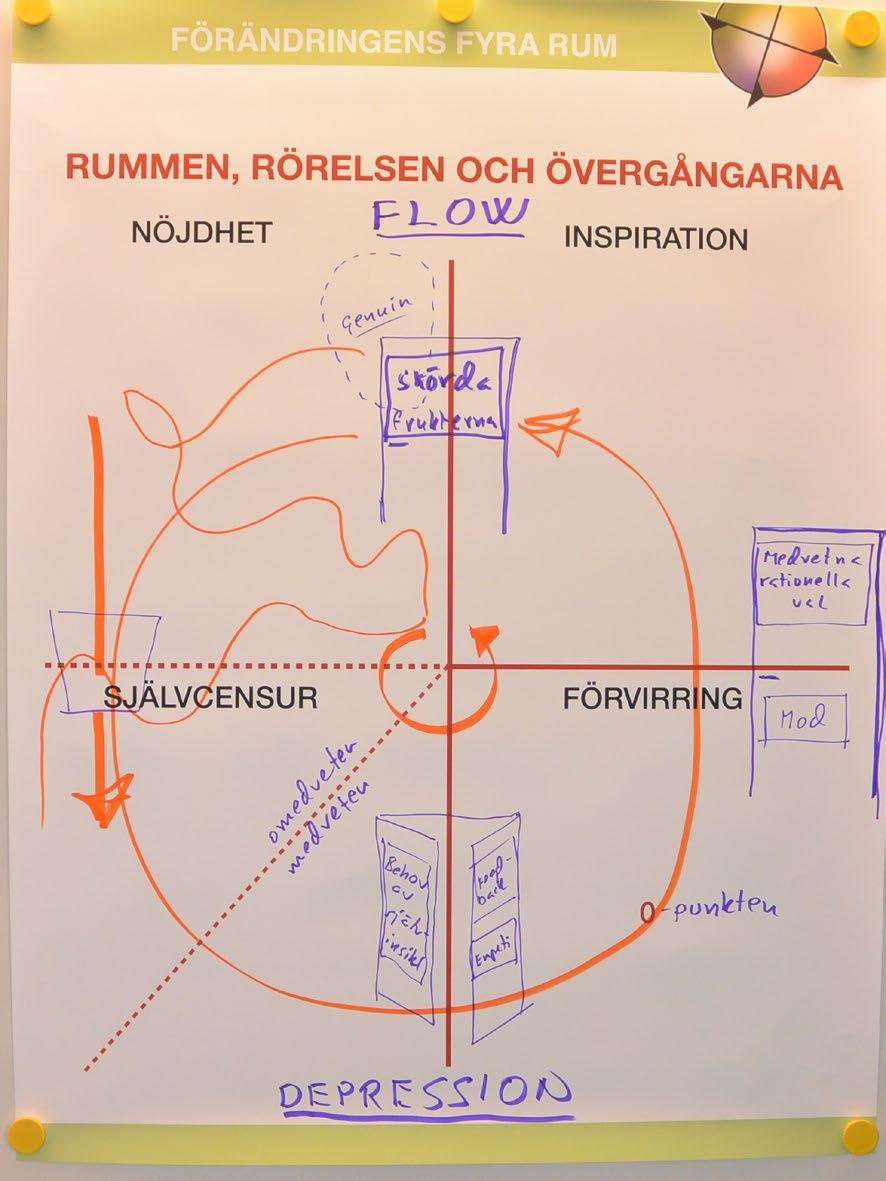 FÖRÄNDRINGENS FYRA RUM
RUMMEN, RÖRELSEN OCH ÖVERGÅNGARNA
FLOW
NÖJDHET
INSPIRATION
Genuin
skörda
frukterna
Medvetna
rationella
val
SJÄLVCENSUR
FÖRVIRRING
Mod
omedveten
medveten
Behov
av
själv-
insikt
back
Empati
0-punkten
DEPRESSION